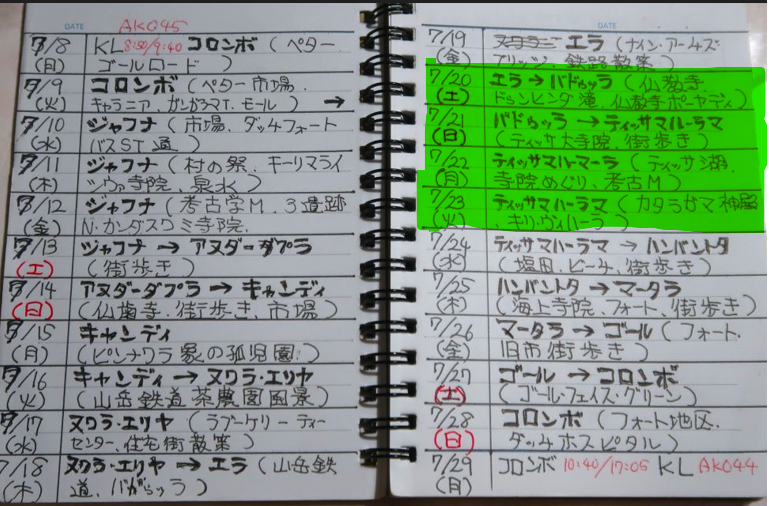 DATE
AK045
7/8 KL 8:50/9:40 コロンボ (ペター
(月) ゴールロード)
7/9 コロンボ (ペター市場.
(火) キャラニア、ガンガラマT、モール) →
7/10 ジャフナ (市場、ダッチフォート
(水) バスST通)
7/11 ジャフナ (村の祭、キーリマライ
(木) 寺院、泉水)
7/12 ジャフナ (考古学M、3遺跡
(金) N.カンダスワミ寺院.
7/13 ジャフナ → アヌダーダプラ
(土) (街歩き)
7/14 アヌダーダプラ → キャンディ
(日) (仏歯寺、街歩き、市場)
7/15 キャンディ
(月) (ピンナワラ象の孤児園.)
7/16 キャンディ → ヌワラ・エリヤ
(火) (山岳鉄道 茶農園風景)
7/17 ヌワラ・エリヤ (ラブーケリー ティー
(水) センター、住宅街散策)
7/18 ヌワラ・エリヤ → エラ (山岳鉄
(木) 道、)
DATE
7/19 エラ (ナイン・アーチズ
(金) ブリッジ、鉄路散策)
7/20 エラ → バドゥッラ (仏教寺
(土) ドゥンヒンダ滝、仏教寺ボーヤディ)
7/21 バドゥッラ → ティッサマハーラマ
(日) (ティッサ大寺院、街歩き)
7/22 ティッサマハーマーラ (ティッサ湖.
(月) 寺院めぐり、考古M)
7/23 ティッサマハラーマ (カタラガマ神殿
(火) ・キリ・ヴィハーラ)
7/24 ティッサマハーラマ → ハンバントタ
(水) (塩田、ビーチ、街歩き)
7/25 ハンバントタ → マータラ
(木) (海上寺院、フォート、街歩き)
7/26 マータラ → ゴール (フォート.
(金) 旧市街歩き)
7/27 ゴール → コロンボ
(土) (ゴール・フェイス・グリーン)
7/28 コロンボ (フォート地区.
(日) ダッチホスピタル)
7/29 コロンボ 10:40/17:05 KL AK044
(月)